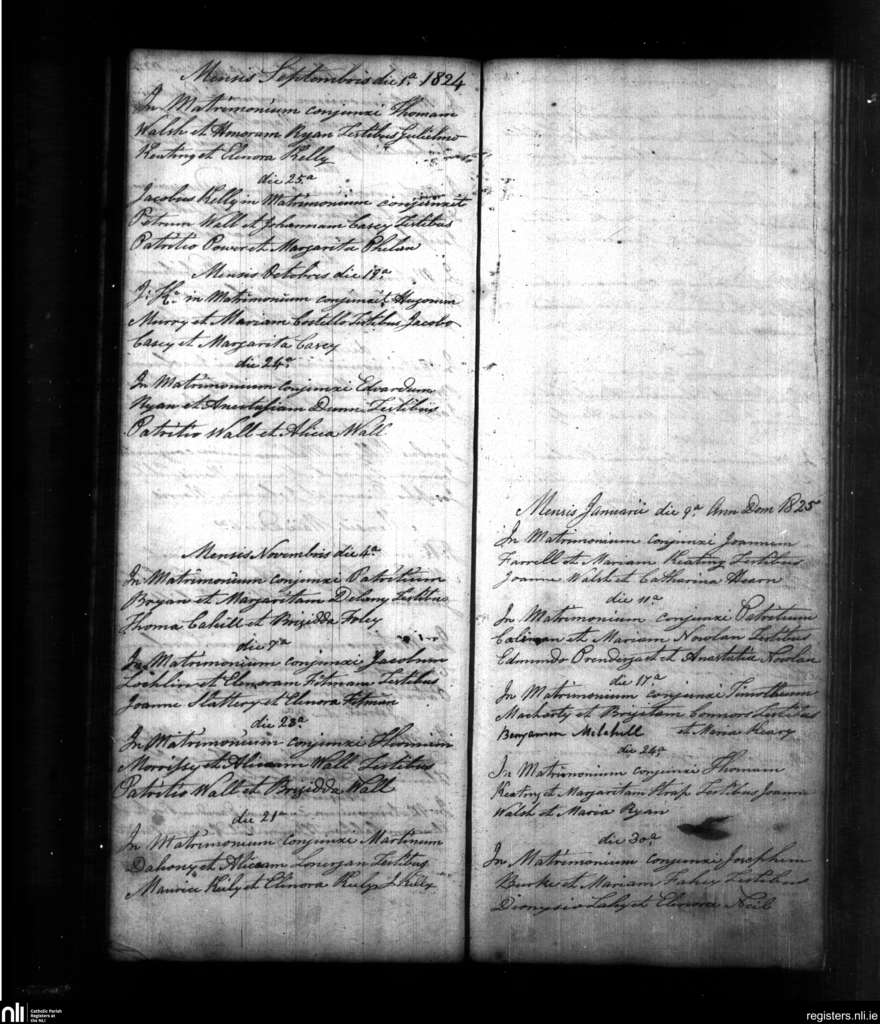 Mensis Septembris die 1a 1824
In Matrimonium conjunxi Thomam
Walsh et Honoram Ryan Testibus Gulielmo
Keating et Elenora Kelly
die 25a
Jacobus Kelly in Matrimonium conjunxit
Petrum Wall et Johannam Casey Testibus
Patritio Power et Margarita Phelan
Mensis Octobris die 19a
J: K: in Matrimonium conjunxit Hugonem
Murry et Mariam Costello Testibus Jacobo
Casey et Margarita Casey
die 24a
In Matrimonium conjunxi Edvardum
Ryan et Anastasiam Dunn Testibus
Patritio Wall et Alicia Wall
Mensis Novembris die 4a
In Matrimonium conjunxi Patritium
Bryan et Margaritam Delany Testibus
Thoma Cahill et Brigidda Foley
die 7a
In Matrimonium conjunxi Jacobum
Lochlin et Elenoram Fitman Testibus
Joanne Slattery et Elenora Fitman
die 23a
In Matrimonium conjunxi Thomam
Morrissy et Aliciam Wall Testibus
Patritio Wall et Brigidda Wall
die 21a
In Matrimonium conjunxi Martinum
Dahony et Aliciam Lonergan Testibus
Maurice Kiely et Elenora Kiely J. Kelly
Mensis Januarii die 9a Ann Dom 1825
In Matrimonium conjunxi Joannem
Farrell et Mariam Keating Testibus
Joanne Walsh et Catharina Hearn
die 11a
In Matrimonium conjunxi Patritium
et Mariam Nowlan Testibus
Edmundo Prendergast et Anastatia Nowlan
die 17a
In Matrimonium conjunxi Timotheum
Macharty et Brigitam Connors Testibus
Benjamen Mitchell et Maria Keary
die 24a
In Matrimonium conjunxi Thomam
Keating et Margaritam Thrap Testibus Joanne
Walsh et Maria Ryan
die 30a
In Matrimonium conjunxi Josephum
Burke et Mariam Fahey Testibus
Dionysio Lahy et Elenora Neil
nli
Catholic Parish
Registers at
the NLI
registers.nli.ie